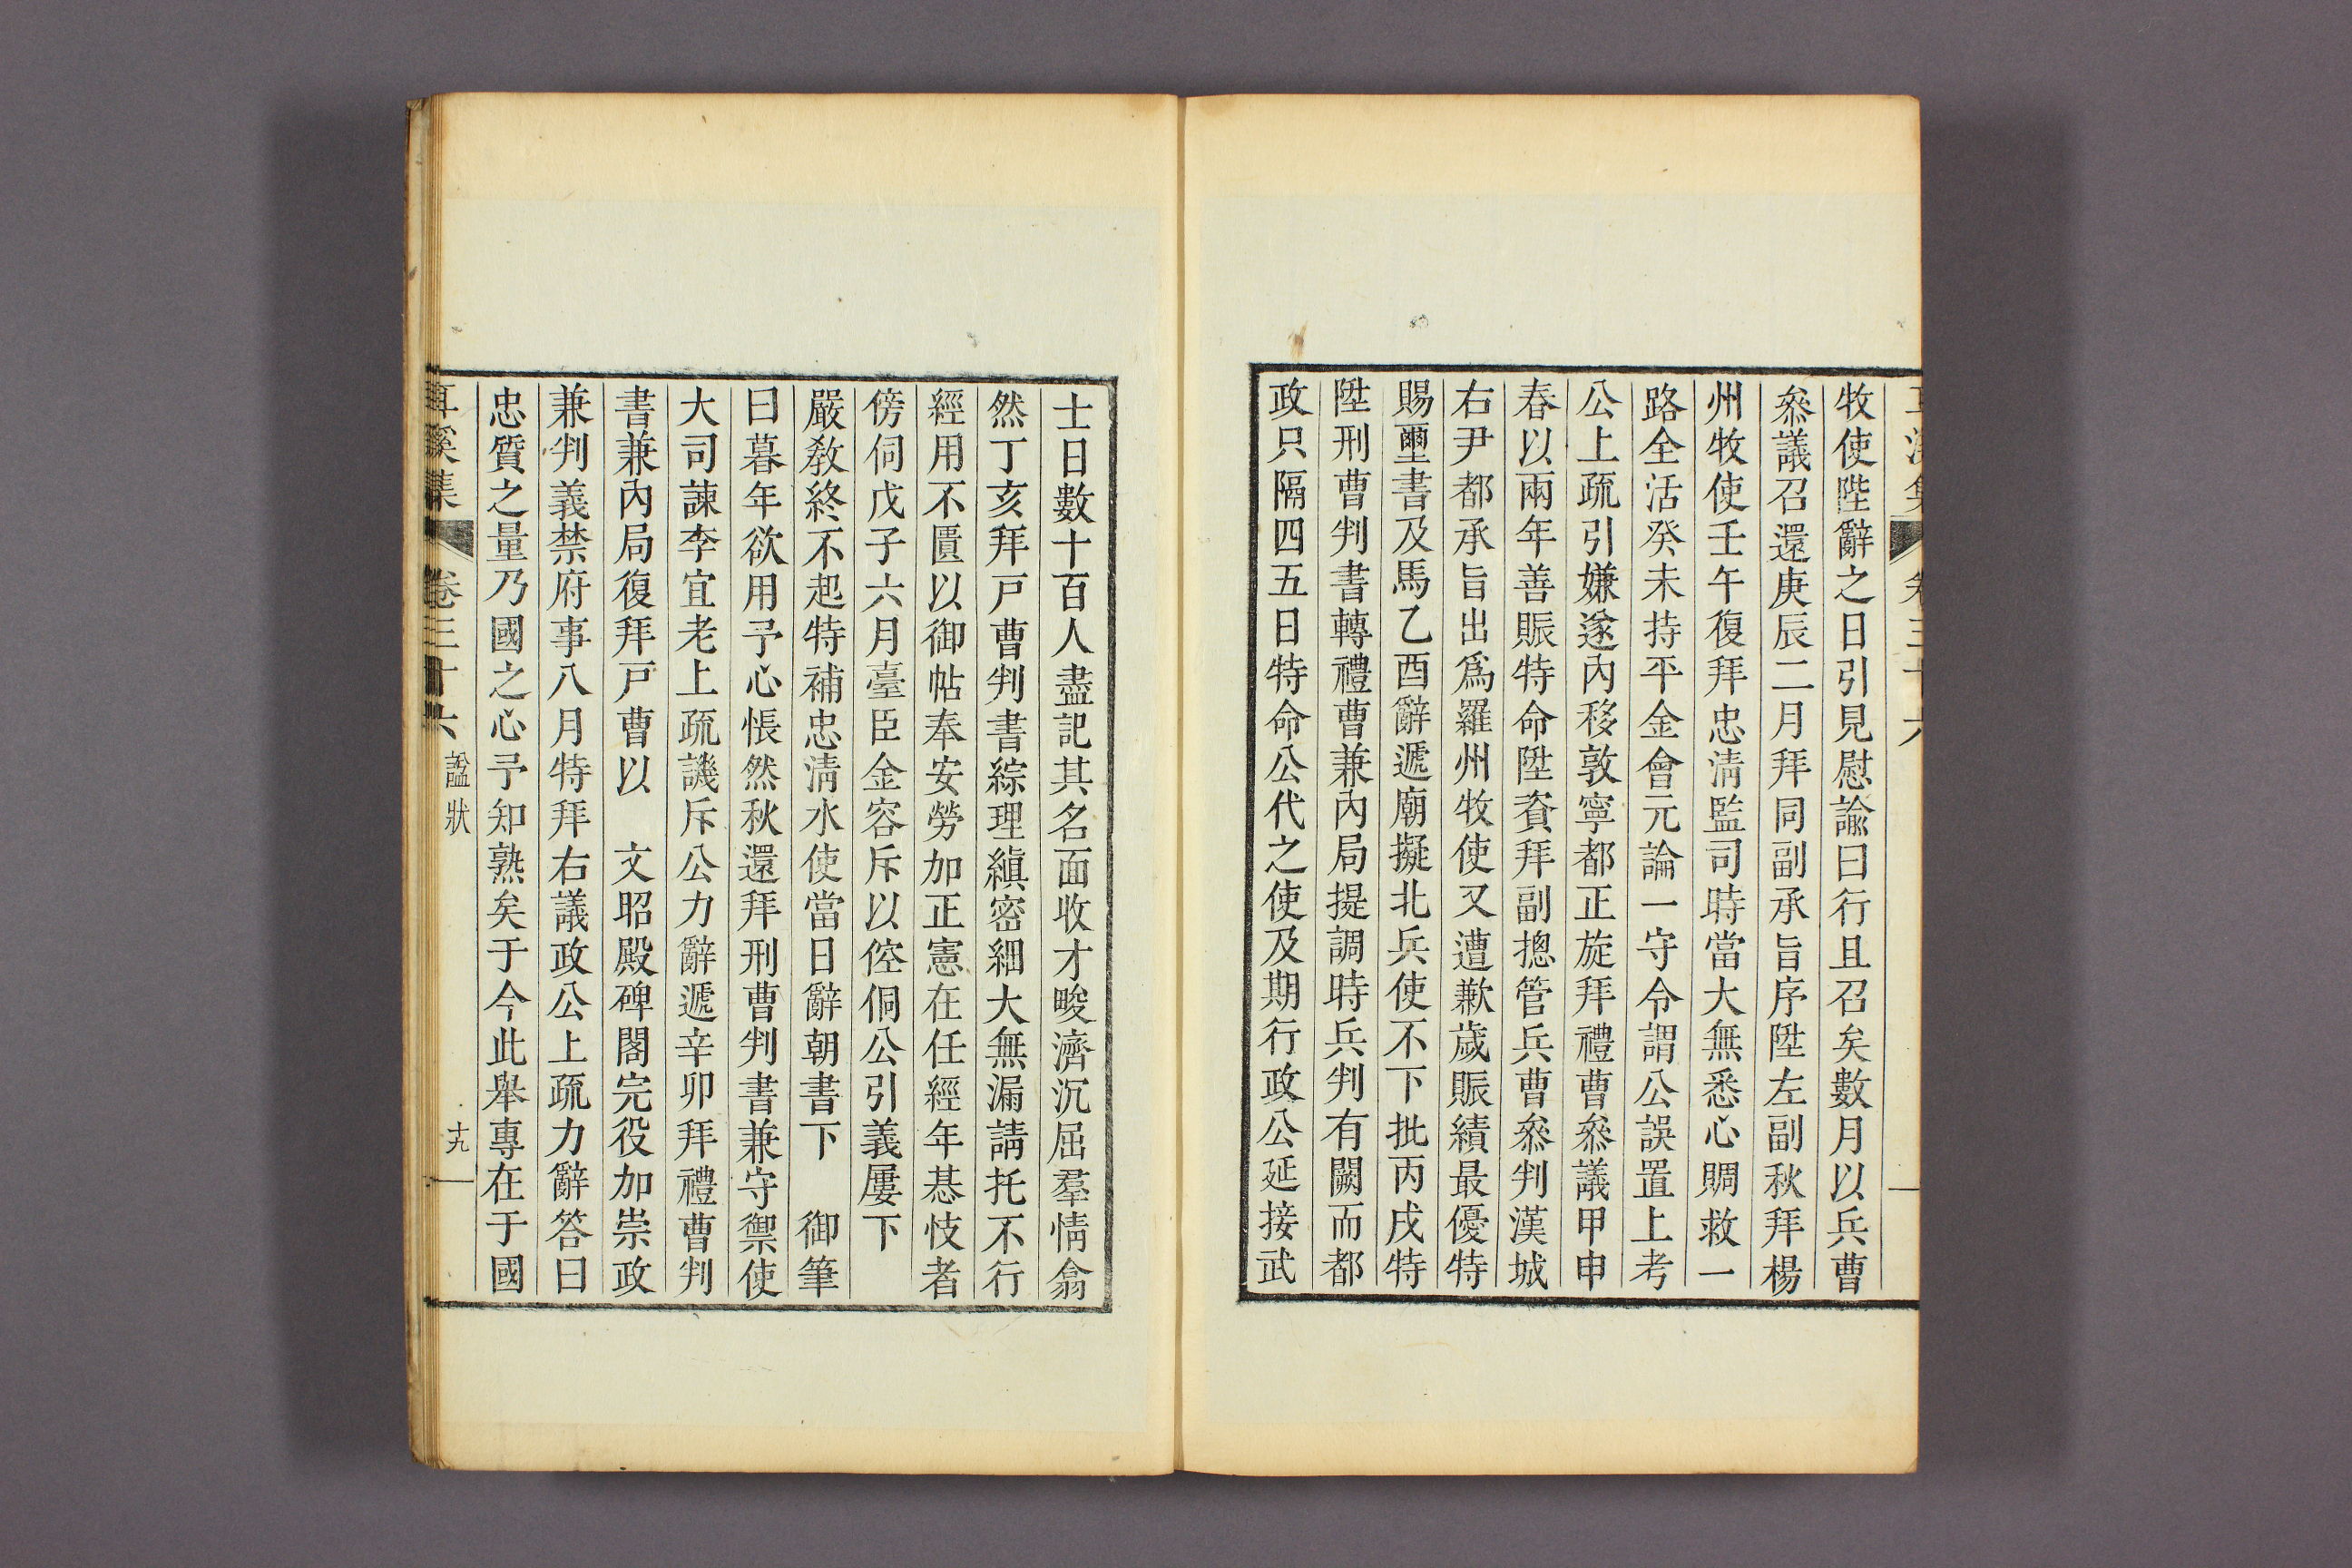 牧使陛辭之日引見慰諭曰行且召矣數月以兵曹
叅議召還庚辰二月拜同副承旨序陞左副秋拜楊
州牧使壬午復拜忠淸監司時當大無悉心賙救一
路全活癸未持平金會元論一守令謂公誤置上考
公上疏引嫌遂內移敦寧都正旋拜禮曹叅議甲申
春以兩年善賑特命陞資拜副摠管兵曹叅判漢城
右尹都承旨出爲羅州牧使又遭歉歲賑績最優特
賜璽書及馬乙酉辭遞廟擬北兵使不下批丙戌特
陞刑曹判書轉禮曹兼內局提調時兵判有闕而都
政只隔四五日特命公代之使及期行政公延接武
士日數十百人盡記其名面收才畯濟沉屈羣情翕
然丁亥拜戶曹判書綜理縝密細大無漏請托不行
經用不匱以御帖奉安勞加正憲在任經年惎忮者
傍伺戊子六月臺臣金容斥以倥侗公引義屢下
嚴敎終不起特補忠淸水使當日辭朝書下 御筆
曰暮年欲用予心悵然秋還拜刑曹判書兼守禦使
大司諫李宜老上疏譏斥公力辭遞辛卯拜禮曹判
書兼內局復拜戶曹以 文昭殿碑閣完役加崇政
兼判義禁府事八月特拜右議政公上疏力辭答曰
忠質之量乃國之心予知熟矣于今此舉專在于國
耳溪集 卷三十六 諡狀 十九